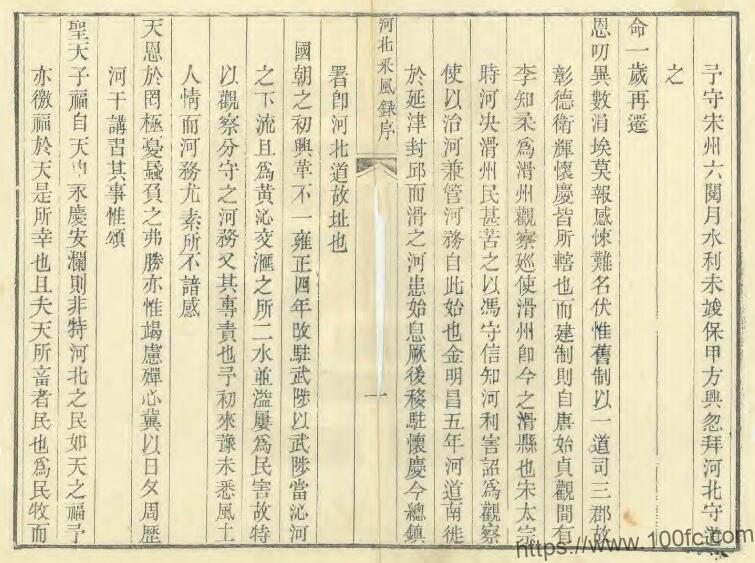 予守宋州六閱月水利未竣保甲方興忽拜河北守道
之
命一歲再遷
恩叨異數涓埃莫報感悚難名伏惟舊制以一道司三郡故
彰德衛輝懷慶皆所轄也而建制則自唐始貞觀間有
李知柔爲滑州觀察廵使滑州卽今之滑縣也宋太宗
時河决滑州民甚苦之以馮守信知河利害詔爲觀察
使以治河兼管河務自此始也金明昌五年河道南徙
於延津封邱而滑之河患始息厥後移駐懷慶今總鎮
河北采風錄序
一
署卽河北道故址也
國朝之初興革不一雍正四年改駐武陟以武陟當沁河
之下流且爲黃沁交滙之所二水並溢屢爲民害故特
以觀察分守之河務又其專責也予初來豫未悉風土
人情而河務尤素所不諳感
天恩於罔極憂蟁負之弗勝亦惟竭慮殫心冀以日夕周歷
河干講習其事惟頌
聖天子福自天申永慶安瀾則非特河北之民如天之福予
亦徼福於天是所幸也且夫天所畜者民也爲民牧而
https://www.100fc.com